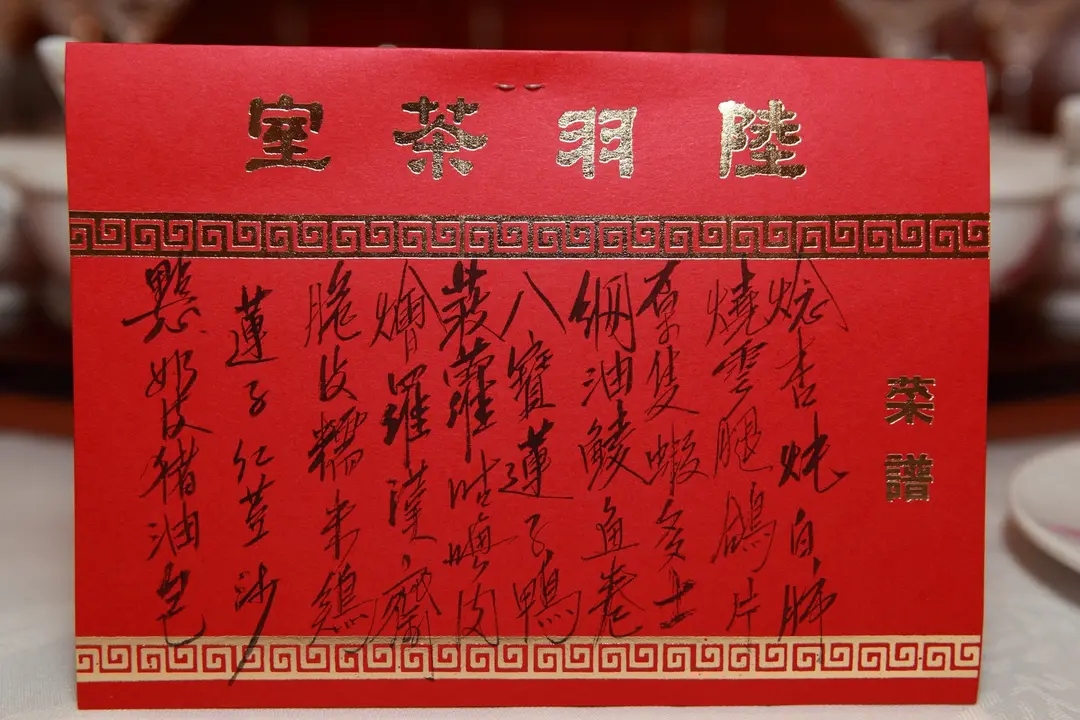 陸羽茶室
菜譜
杏炖白肺
燒雲腿鴿片
原隻蝦多士
網油鯪鱼卷
八寶蓮子鴨
菠蘿咕嚕肉
燴羅漢齋
脆皮糯米鷄
蓮子仁荳沙
點奶皮猪油包